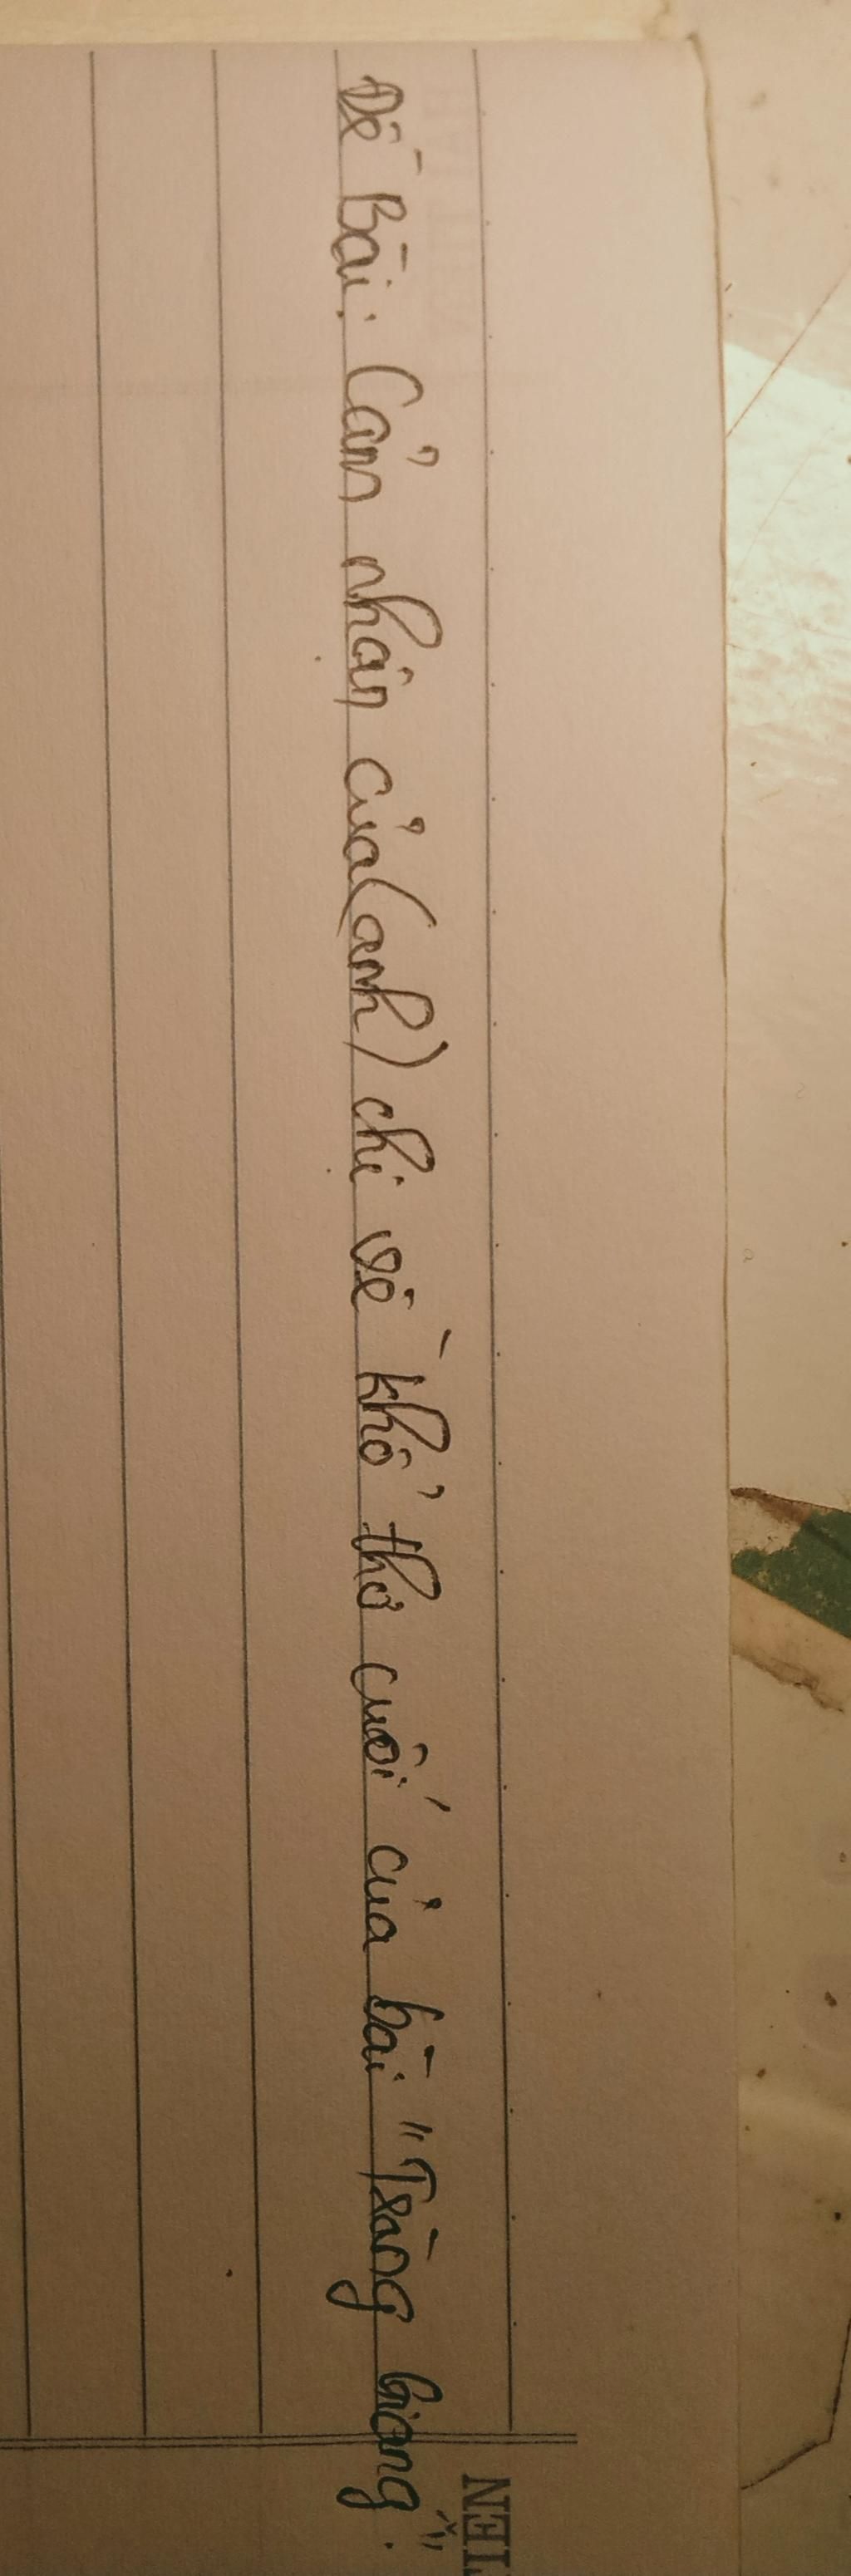 Đề Bài: Cảm nhận của (anh) chị về khổ thơ cuối của bài "Tràng Giang".